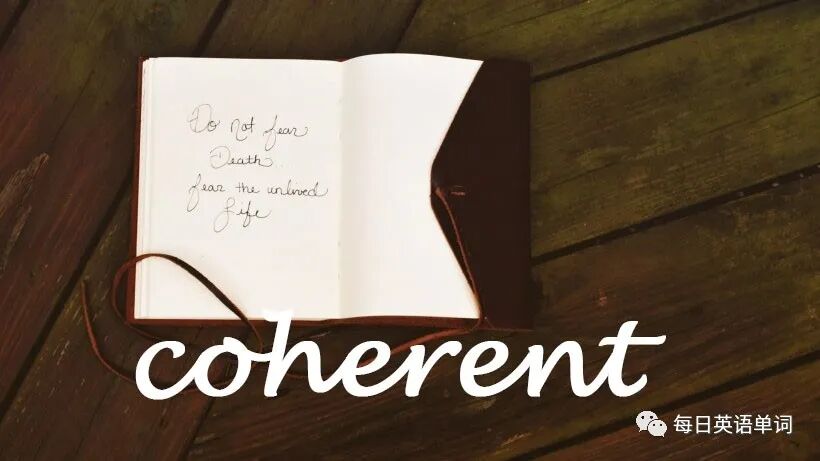 Do not fear
Death..
fear the unlived
Life
coherent
每日英语单词